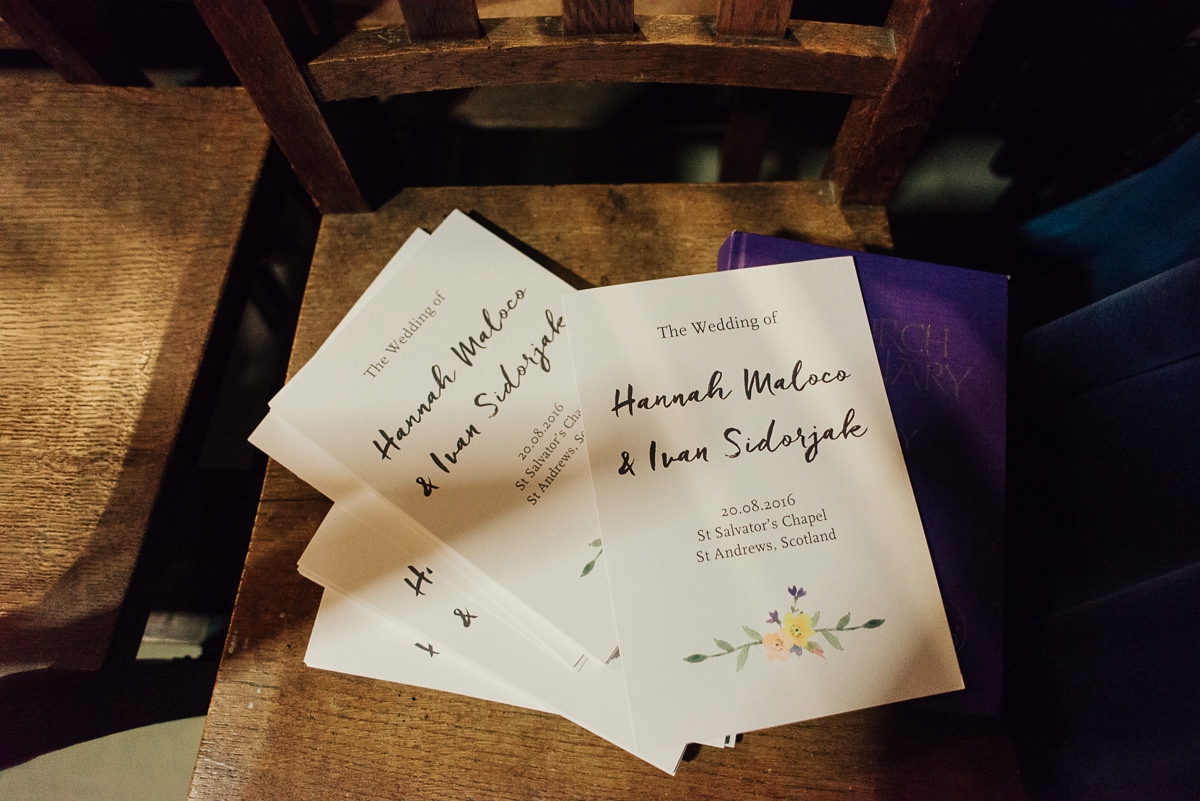 The Wedding of
Hannah Maloco
& Ivan Sidorjak
20.08.2016
St Salvator's Chapel
St Andrews, Scotland
The Wedding of
Hannah Maloco
& Ivan Sidorjak
20.08.2016
St Salvator's Cha
St Andrews, Sc
H
&